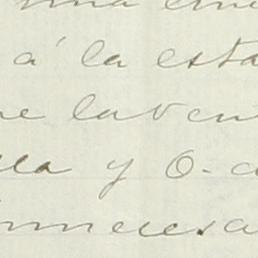 una
á la esta
ne laven
lla y O. a
nmeresa